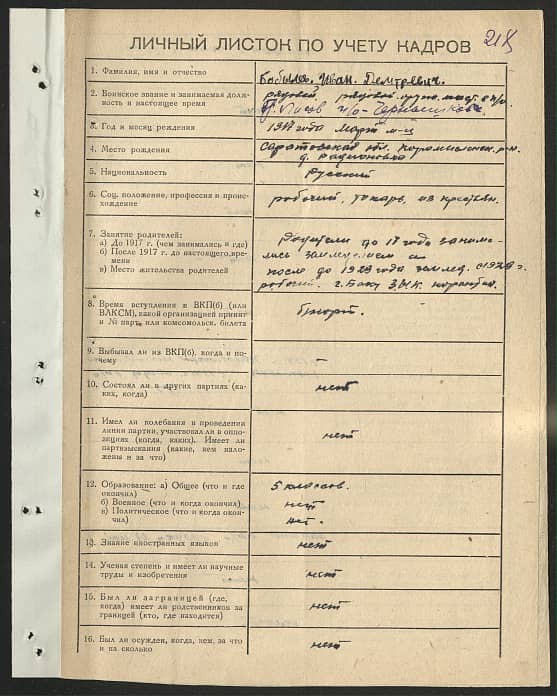 ЛИЧНЫЙ ЛИСТОК ПО УЧЕТУ КАДРОВ
218
1. Фамилия, имя и отчество
Иван Дмитревич
2. Воинское звание и занимаемая долж-
ность в настоящее время
рядовой рядовой
3. Год и месяц рождения
1917 года Март м-ц
4. Место рождения
Саратовская обл.
д. Радионовка
5. Национальность
Русский
6. Соц. положение, профессия и проис-
хождение
рабочий, токарь, из крестьян.
7. Занятие родителей:
а) До 1917 г. (чем занимались и где)
б) После 1917 г. до настоящего вре-
мени
в) Место жительства родителей
Родители до 17 года занима-
лись земледелием
после до 1928 года землед. с 1928 г.
рабочий. г. Баку
8. Время вступления в ВКП(б) (или
ВЛКСМ), какой организацией принят
и № парт. или комсомольск. билета
б/парт.
9. Выбывал ли из ВКП(б), когда и по-
чему
–
10. Состоял ли в других партиях (ка-
ких, когда)
нет
11. Имел ли колебания в проведении
линии партии, участвовал ли в оппо-
зициях (когда, каких). Имеет ли
партвзыскания (какие, кем нало-
жены и за что)
нет
12. Образование: а) Общее (что и где
окончил)
б) Военное (что и когда окончил)
в) Политическое (что и когда окон-
чил)
5 классов.
нет
нет.
13. Знание иностранных языков
нет
14. Ученая степень и имеет ли научные
труды и изобретения
нет
15. Был ли заграницей (где,
когда) имеет ли родственников за
границей (кто, где находится)
нет
16. Был ли осужден, когда, кем, за что
и на сколько
нет